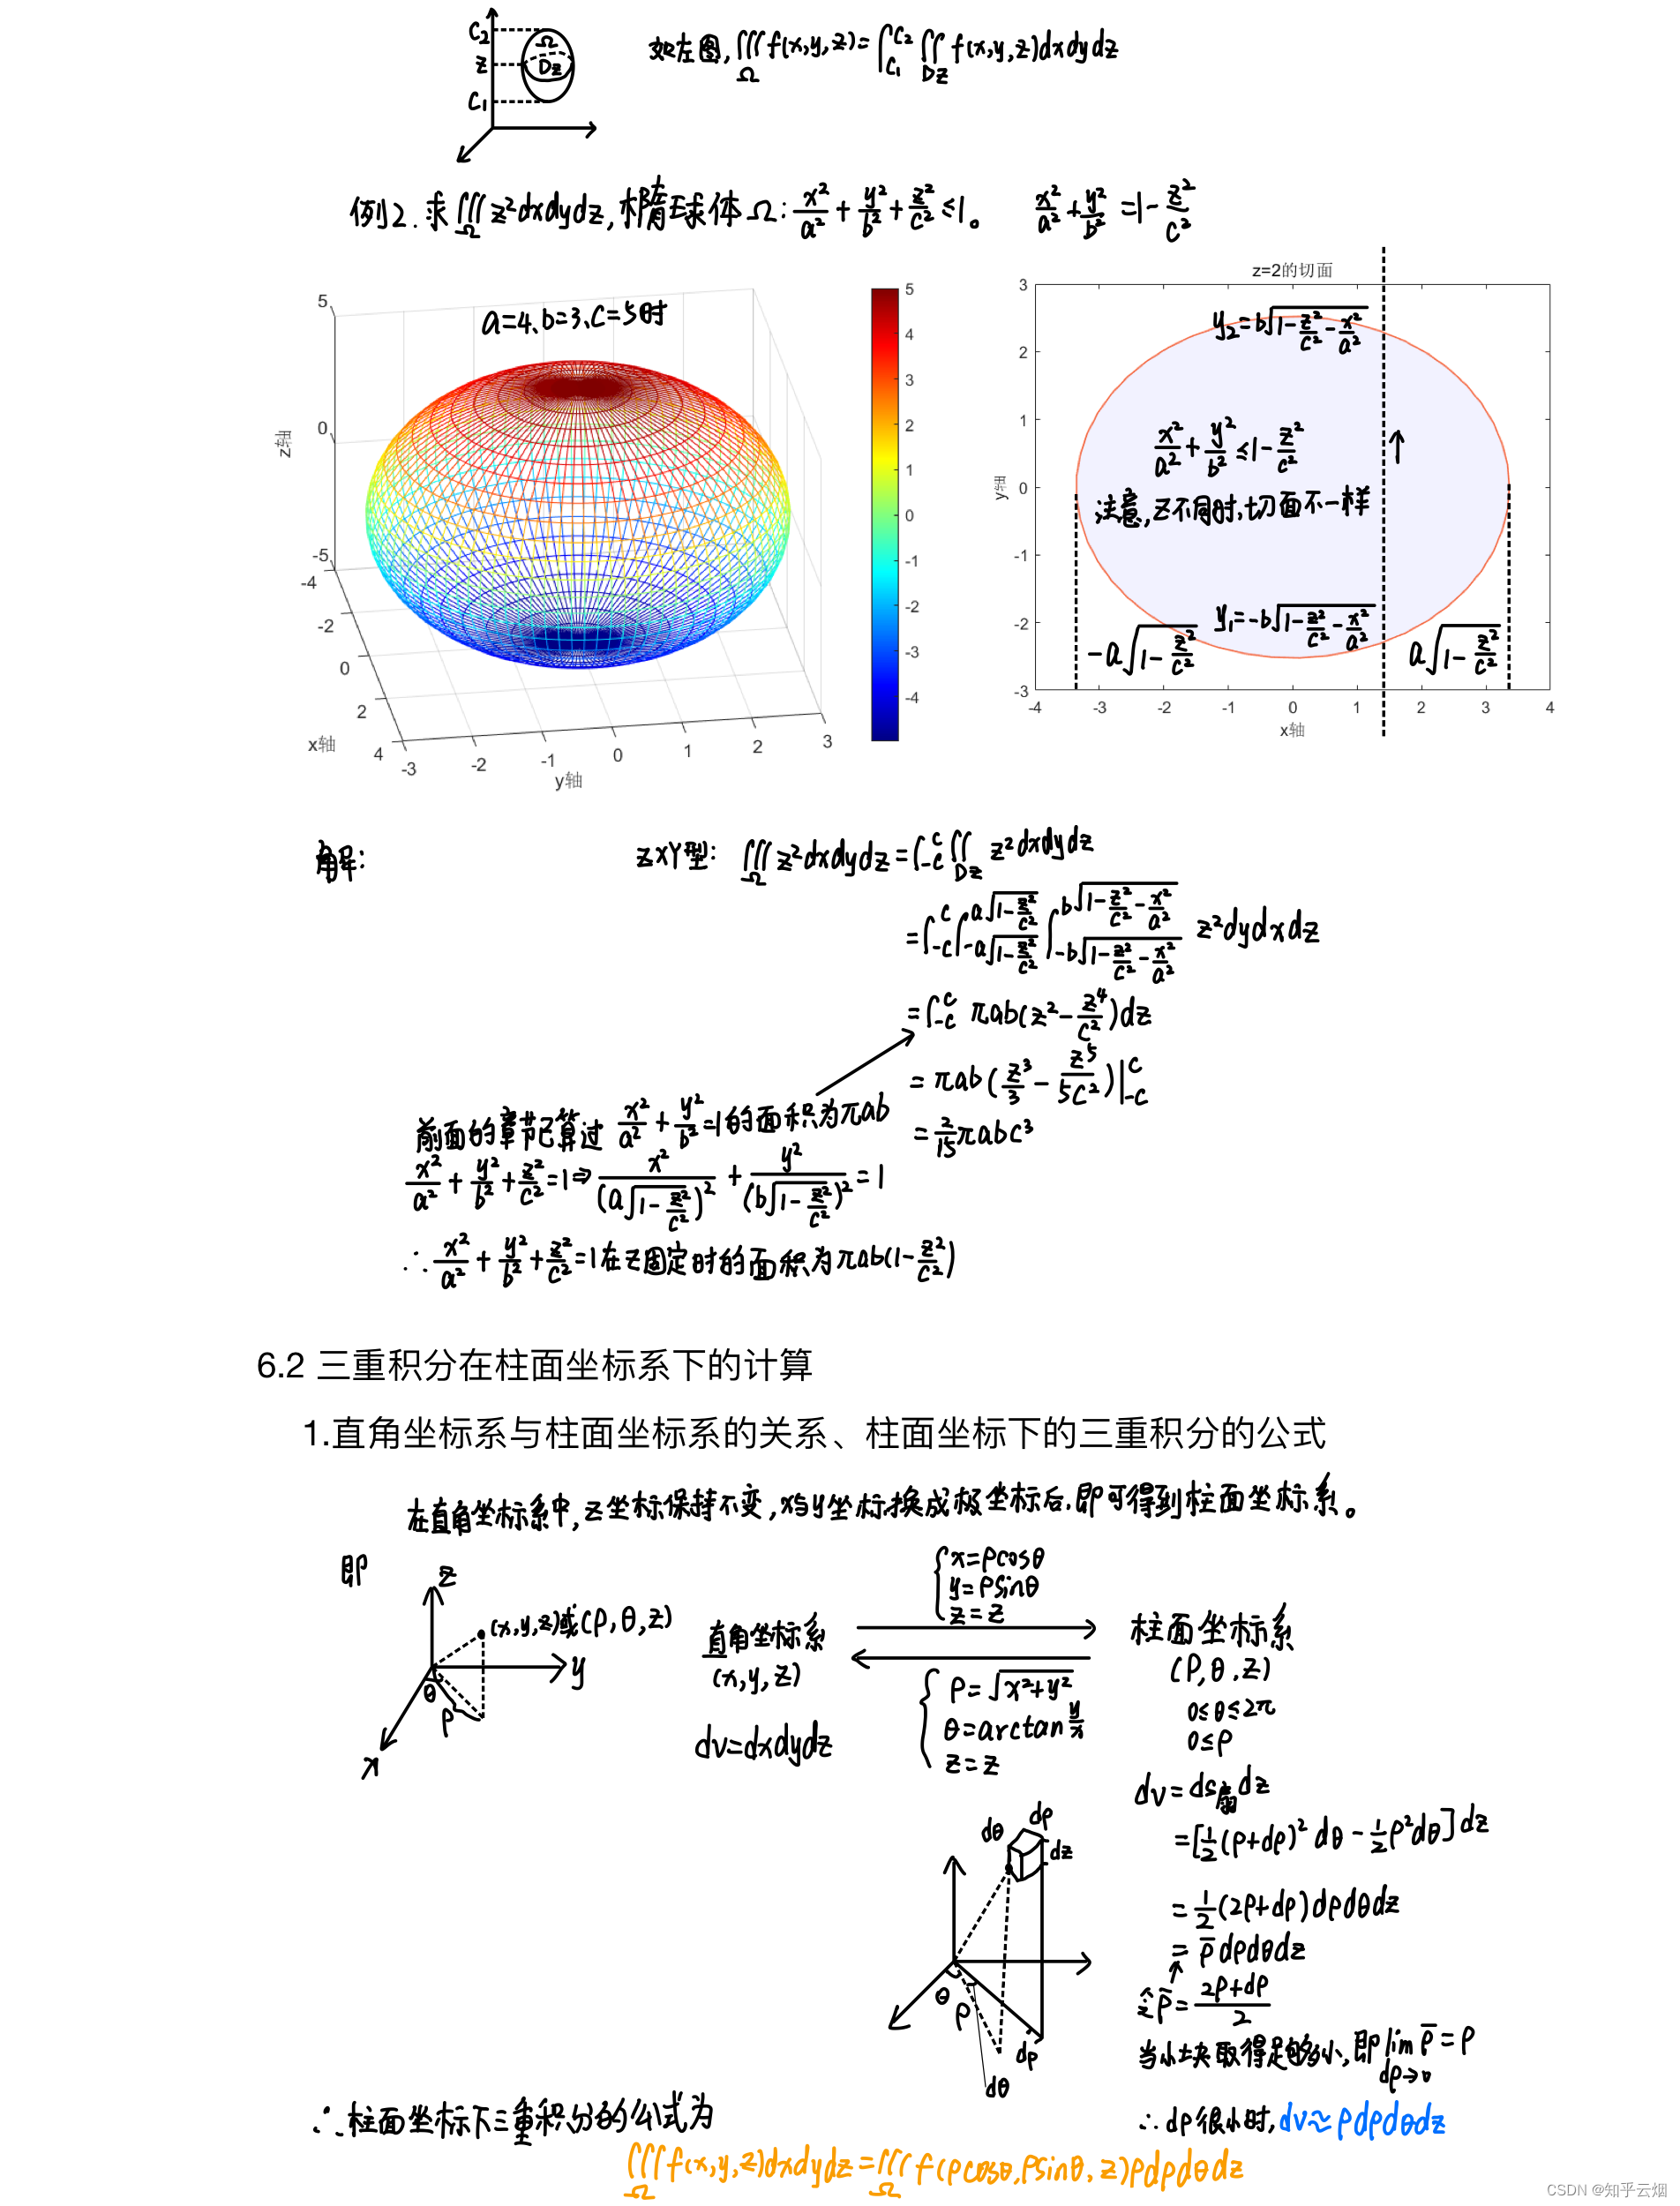 C₂
z
C₁
Ω
Dz
如左图, ∭_Ω f(x,y,z)=∫_{C₁}^{C₂}∬_{Dz} f(x,y,z)dxdydz
例2. 求∭_Ω z²dxdydz, 椭球体Ω: x²/a²+y²/b²+z²/c²≤1。 x²/a²+y²/b²=1-z²/c²
a=4、b=3、c=5时
5
0
-5
z轴
-4
-2
0
2
4
x轴
-3
-2
-1
0
1
2
3
y轴
5
4
3
2
1
0
-1
-2
-3
-4
z=2的切面
y₂=b√(1-z²/c²-x²/a²)
x²/a²+y²/b²≤1-z²/c²
注意, z不同时, 切面不一样
y₁=-b√(1-z²/c²-x²/a²)
-a√(1-z²/c²)
a√(1-z²/c²)
3
2
1
0
-1
-2
-3
y轴
-4
-3
-2
-1
0
1
2
3
4
x轴
解:
ZXY型: ∭_Ω z²dxdydz=∫_{-c}^{c}∬_{Dz} z²dxdydz
=∫_{-c}^{c}∫_{-a√(1-z²/c²)}^{a√(1-z²/c²)}∫_{-b√(1-z²/c²-x²/a²)}^{b√(1-z²/c²-x²/a²)} z²dydxdz
=∫_{-c}^{c} πab(z²-z⁴/c²)dz
=πab(z³/3-z⁵/5c²)|_{-c}^{c}
=2/15 πabc³
前面的章节已算过 x²/a²+y²/b²=1的面积为πab
x²/a²+y²/b²+z²/c²=1⇒x²/(a√(1-z²/c²))²+y²/(b√(1-z²/c²))²=1
∴x²/a²+y²/b²+z²/c²=1在z固定时的面积为πab(1-z²/c²)
6.2 三重积分在柱面坐标系下的计算
1.直角坐标系与柱面坐标系的关系、柱面坐标下的三重积分的公式
在直角坐标系中, z坐标保持不变, x与y坐标换成极坐标后, 即可得到柱面坐标系。
即
z
(x,y,z)或(ρ,θ,z)
y
θ
ρ
x
直角坐标系
(x,y,z)
dv=dxdydz
x=ρcosθ
y=ρsinθ
z=z
ρ=√(x²+y²)
θ=arctan y/x
z=z
柱面坐标系
(ρ,θ,z)
0≤θ≤2π
0≤ρ
dv=ds扇dz
=[1/2(ρ+dρ)²dθ-1/2ρ²dθ]dz
=1/2(2ρ+dρ)dρdθdz
=ρ̄dρdθdz
令ρ̄=(2ρ+dρ)/2
当小块取得足够小, 即lim_{dρ→0} ρ̄=ρ
∴dρ很小时, dv≈ρdρdθdz
dρ
dθ
dz
θ
ρ
dρ
dθ
∴柱面坐标下三重积分的公式为
∭_Ω f(x,y,z)dxdydz=∭_Ω f(ρcosθ,ρsinθ,z)ρdρdθdz
CSDN @知乎云烟